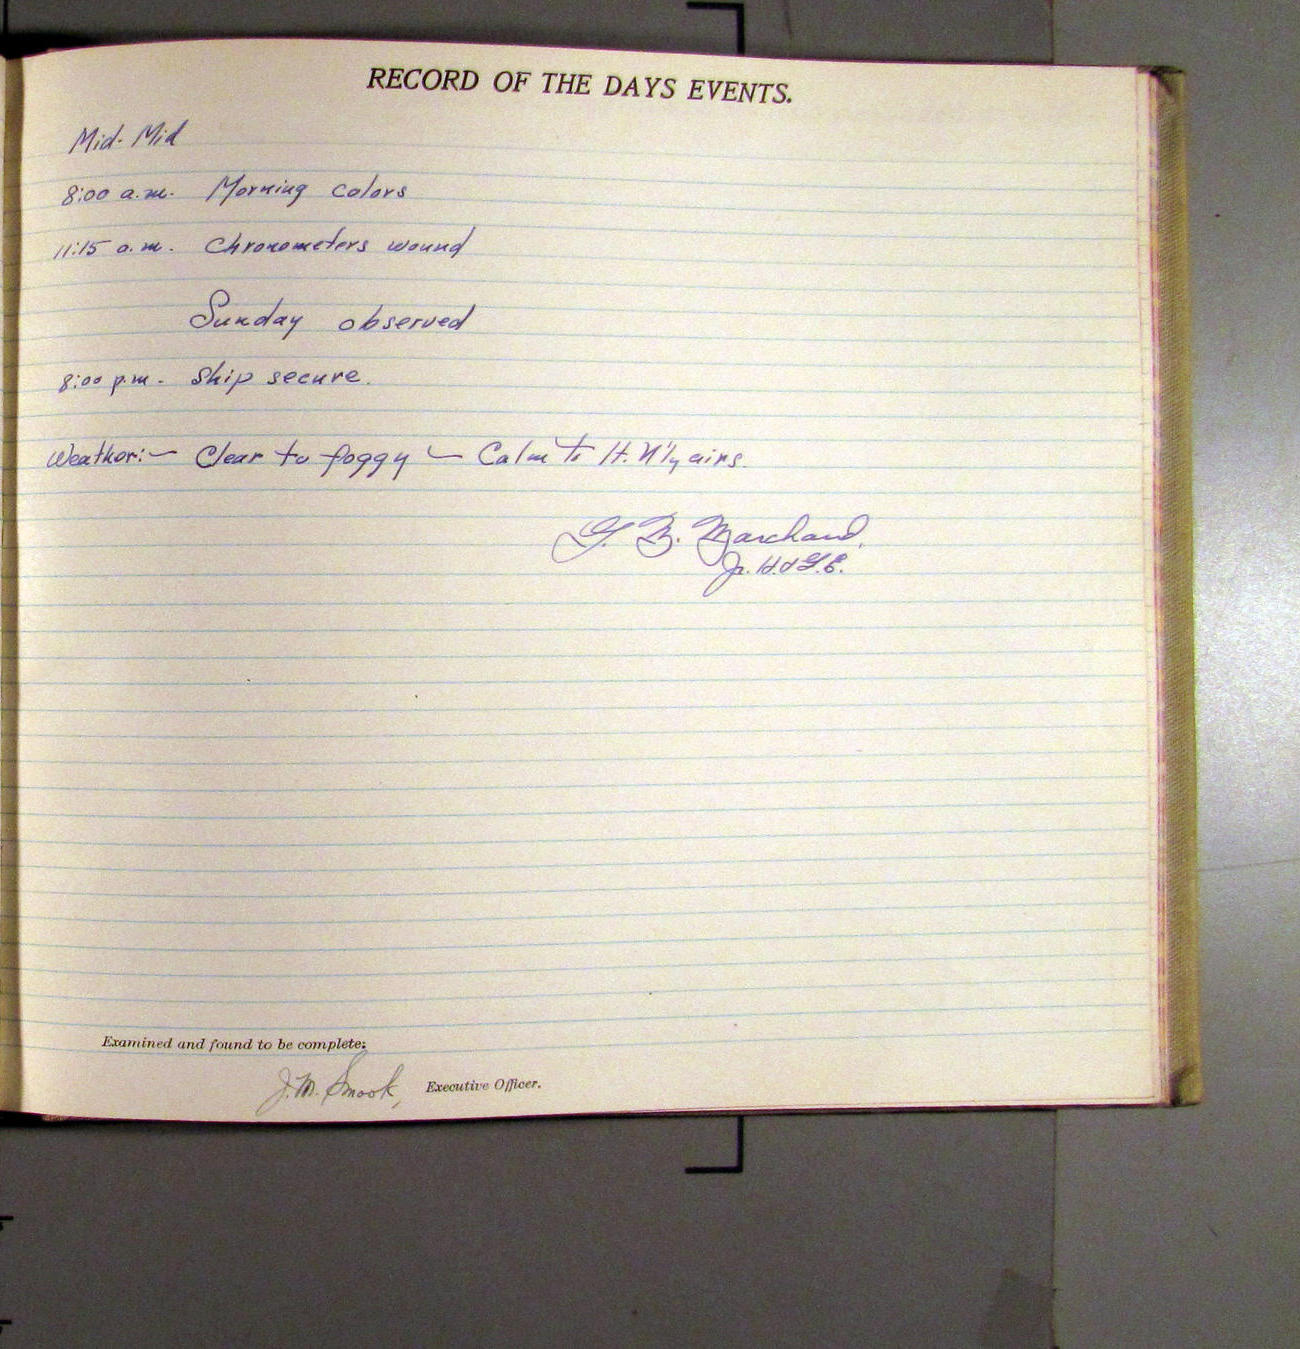 RECORD OF THE DAYS EVENTS.
Mid- Mid
8:00 a.m. Morning colors
11:15 a.m. Chronometers wound
Sunday observed
8:00 p.m. Ship secure.
Weather:— Clear to foggy — Calm to lt. N'ly airs.
G. B. Marchand,
Jr. H. & G. E.
Examined and found to be complete:
J. M. Smook, Executive Officer.